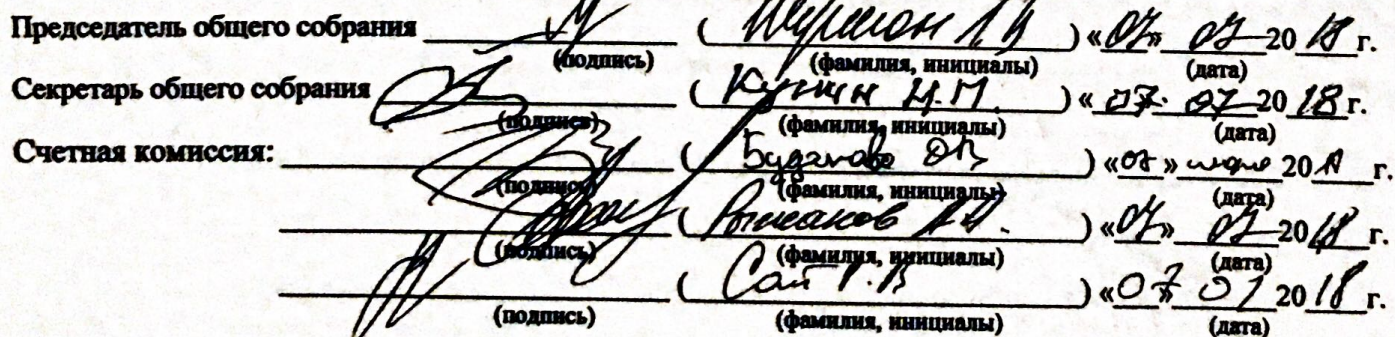 Председатель общего собрания ( Л В ) «07» 07 20 18 г.
(подпись) (фамилия, инициалы) (дата)
Секретарь общего собрания ( Н.П. ) « 07. 07 20 18 г.
(подпись) (фамилия, инициалы) (дата)
Счетная комиссия: ( Буданова ОВ ) «07» июля 20 г.
(подпись) (фамилия, инициалы) (дата)
( Рыжаков ) «07» 07 20 18 г.
(подпись) (фамилия, инициалы) (дата)
( Сай Г.В ) «07 07 20 18 г.
(подпись) (фамилия, инициалы) (дата)